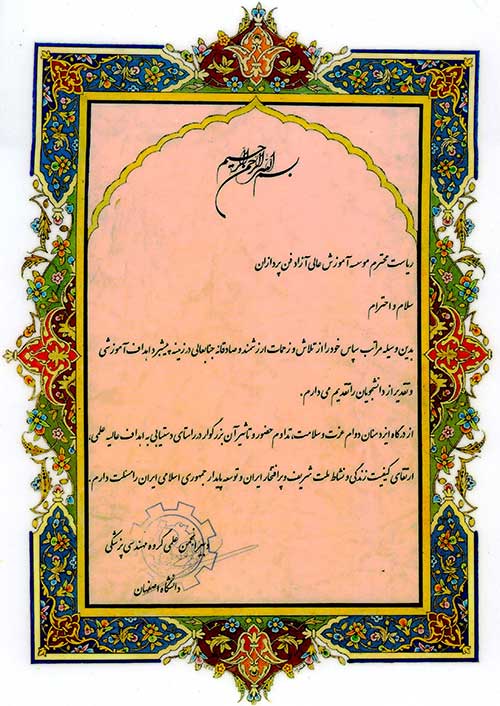 بسم الله الرحمن الرحیم
ریاست محترم موسسه آموزش عالی آزاد فن پردازان
سلام و احترام
بدین وسیله مراتب سپاس خود را از تلاش و زحمات ارزشمند و صادقانه جنابعالی در زمینه پیشبرد اهداف آموزشی
و تقدیر از دانشجویان را تقدیم می دارم.
از درگاه ایزدمنان دوام عزت و سلامت، تداوم حضور و تاثیر آن بزرگوار در راستای دستیابی به اهداف عالیه علمی،
ارتقای کیفیت زندگی و نشاط ملت شریف و پر افتخار ایران و توسعه پایدار جمهوری اسلامی ایران را مسئلت دارم.
دبیر انجمن علمی گروه مهندسی پزشکی
دانشگاه اصفهان